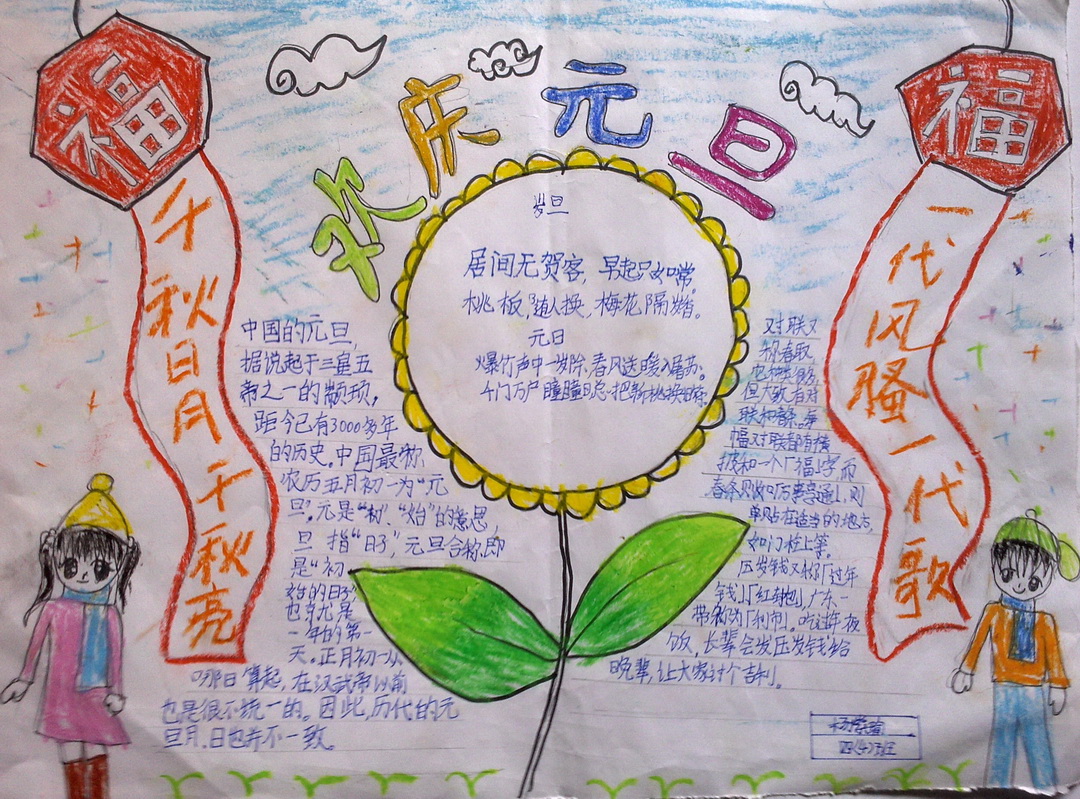 欢庆元旦
福
千秋日月千秋亮
福
一代风骚一代歌
岁旦
居间无贺客，早起只如常。
桃板随人换，梅花隔
元日
爆竹声中一岁除，春风送暖入屠苏。
千门万户瞳瞳日，总把新桃换旧符。
中国的元旦，
据说起于三皇五
帝之一的颛顼，
距今已有3000多年
的历史。中国最称
农历五月初一为“元
旦”。元是“初”、“始”的意思，
旦指“日子”，元旦合称即
是“初
始的日子”
也就是
一年的第一
天。正月初一从
哪日算起，在汉武帝以前
也是很不统一的。因此，历代的元
旦月、日也并不一致。
对联又
称春取，
但大致有对
联和
幅对联都有横
披和一个「福」字而
春条则如「万事亨通」，则
单贴在适当的地方，
如门栓上等。
压岁钱又称「过年
钱」「红封包」，广东一
带称为「利市」。吃过年夜
饭，长辈会发压岁钱给
晚辈，让大家讨个吉利。
四(4)班